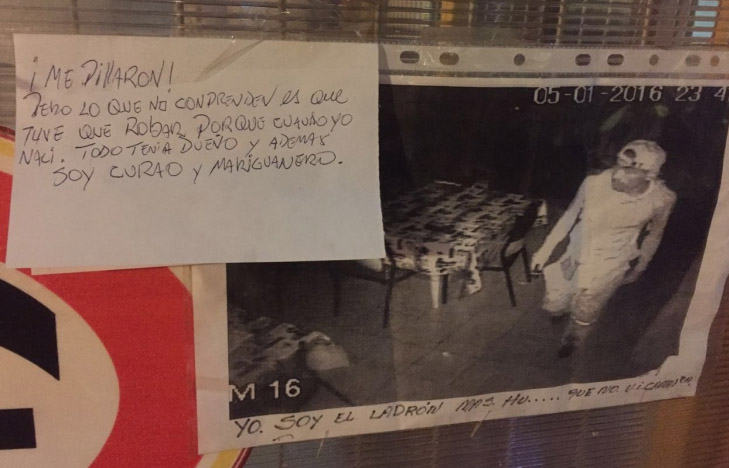 ¡ME PILLARON!
PERO LO QUE NO CONPRENDEN ES QUE
TUVE QUE ROBAR PORQUE CUANDO YO
NACI. TODO TENIA DUEÑO Y ADEMAS
SOY CURAO Y MARIGUANERO.
05-01-2016 23 4
M 16
YO. SOY EL LADRÓN MAS HU..... QUE NO VI